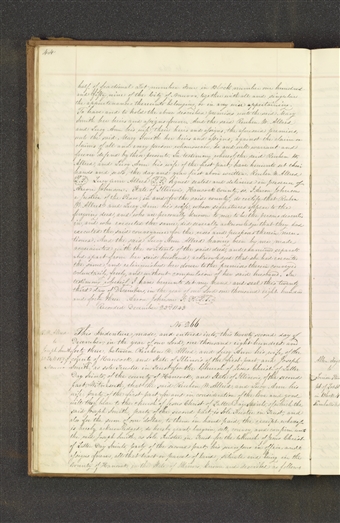 half of fractional Lot number four in Block number one hundred
and fifty nine of the City of Nauvoo together with all and singular
the appurtenances thereunto belonging or in any wise appertaining
To have and to hold the above described premises unto the said
Smith his heirs and assigns forever, And the said Reuben H. Allred
and Lucy Ann his wife their heirs and assigns the aforesaid premises
unto the said Smith his heirs and assigns, against the claim or
claims of all and every person whomsoever do and will warrant and
forever defend by these presents. In testimony whereof the said Reuben H.
Allred and Lucy Ann his wife of the first part have hereunto set their
hands and seals the day and year first above written Reuben H. Allred
Lucy Ann Allred Signed sealed and delivered in presence of
Aaron Johnson, State of Illinois Hancock County ss I Aaron Johnson
a Justice of the Peace in and for the said county do certify that Reuben
H. Allred and Lucy Ann his wife, whose signatures appear to the
foregoing deed and who are personally known to me to be the persons described
in and who executed the same did severally acknowledge that they had
executed the said conveyance for the uses and purposes therein men-
tioned. And the said Lucy Ann Allred having been by me made
acquainted with the contents of the said deed, and examined separate
and apart from her said husband, acknowledged that she had executed
the same and relinquished her dower to the premises therein conveyed
voluntarily freely, and without compulsion of her said husband. In
testimony whereof I have hereunto set my hand and seal this twenty
third day of December in the year of our Lord one thousand eight hundred
and forty three Aaron Johnson J.P.
Recorded December 23d 1843
No 366
This Indenture, made and entered into this twenty second day of
December in the year of our Lord, one thousand eight hundred and
forty three between Reuben H. Allred and Lucy Ann his wife of the
County of Hancock and State of Illinois of the first part and Joseph
Smith as sole Trustee in Trust for the Church of Jesus Christ of Latter
Day Saints of the county of Hancock and State of Illinois of the second
part, Witnesseth, that the said Reuben H. Allred and Lucy Ann his
wife party of the first part for and in consideration of the love and good
will they bear to the church of Jesus Christ of Latter Day Saints of which the
said Joseph Smith party of the second part is sole Trustee in Trust, and
also for the sum of one dollar, to them in hand paid, the receipt whereof
is hereby acknowledged, do hereby grant bargain sell, convey and confirm unto
the said Joseph Smith, as sole Trustee in Trust for the Church of Jesus Christ
of Latter Day Saints party of the second part his successors in office and
assigns forever, all that tract or parcel of land, situate and being in the
County of Hancock in the State of Illinois known and described as follows